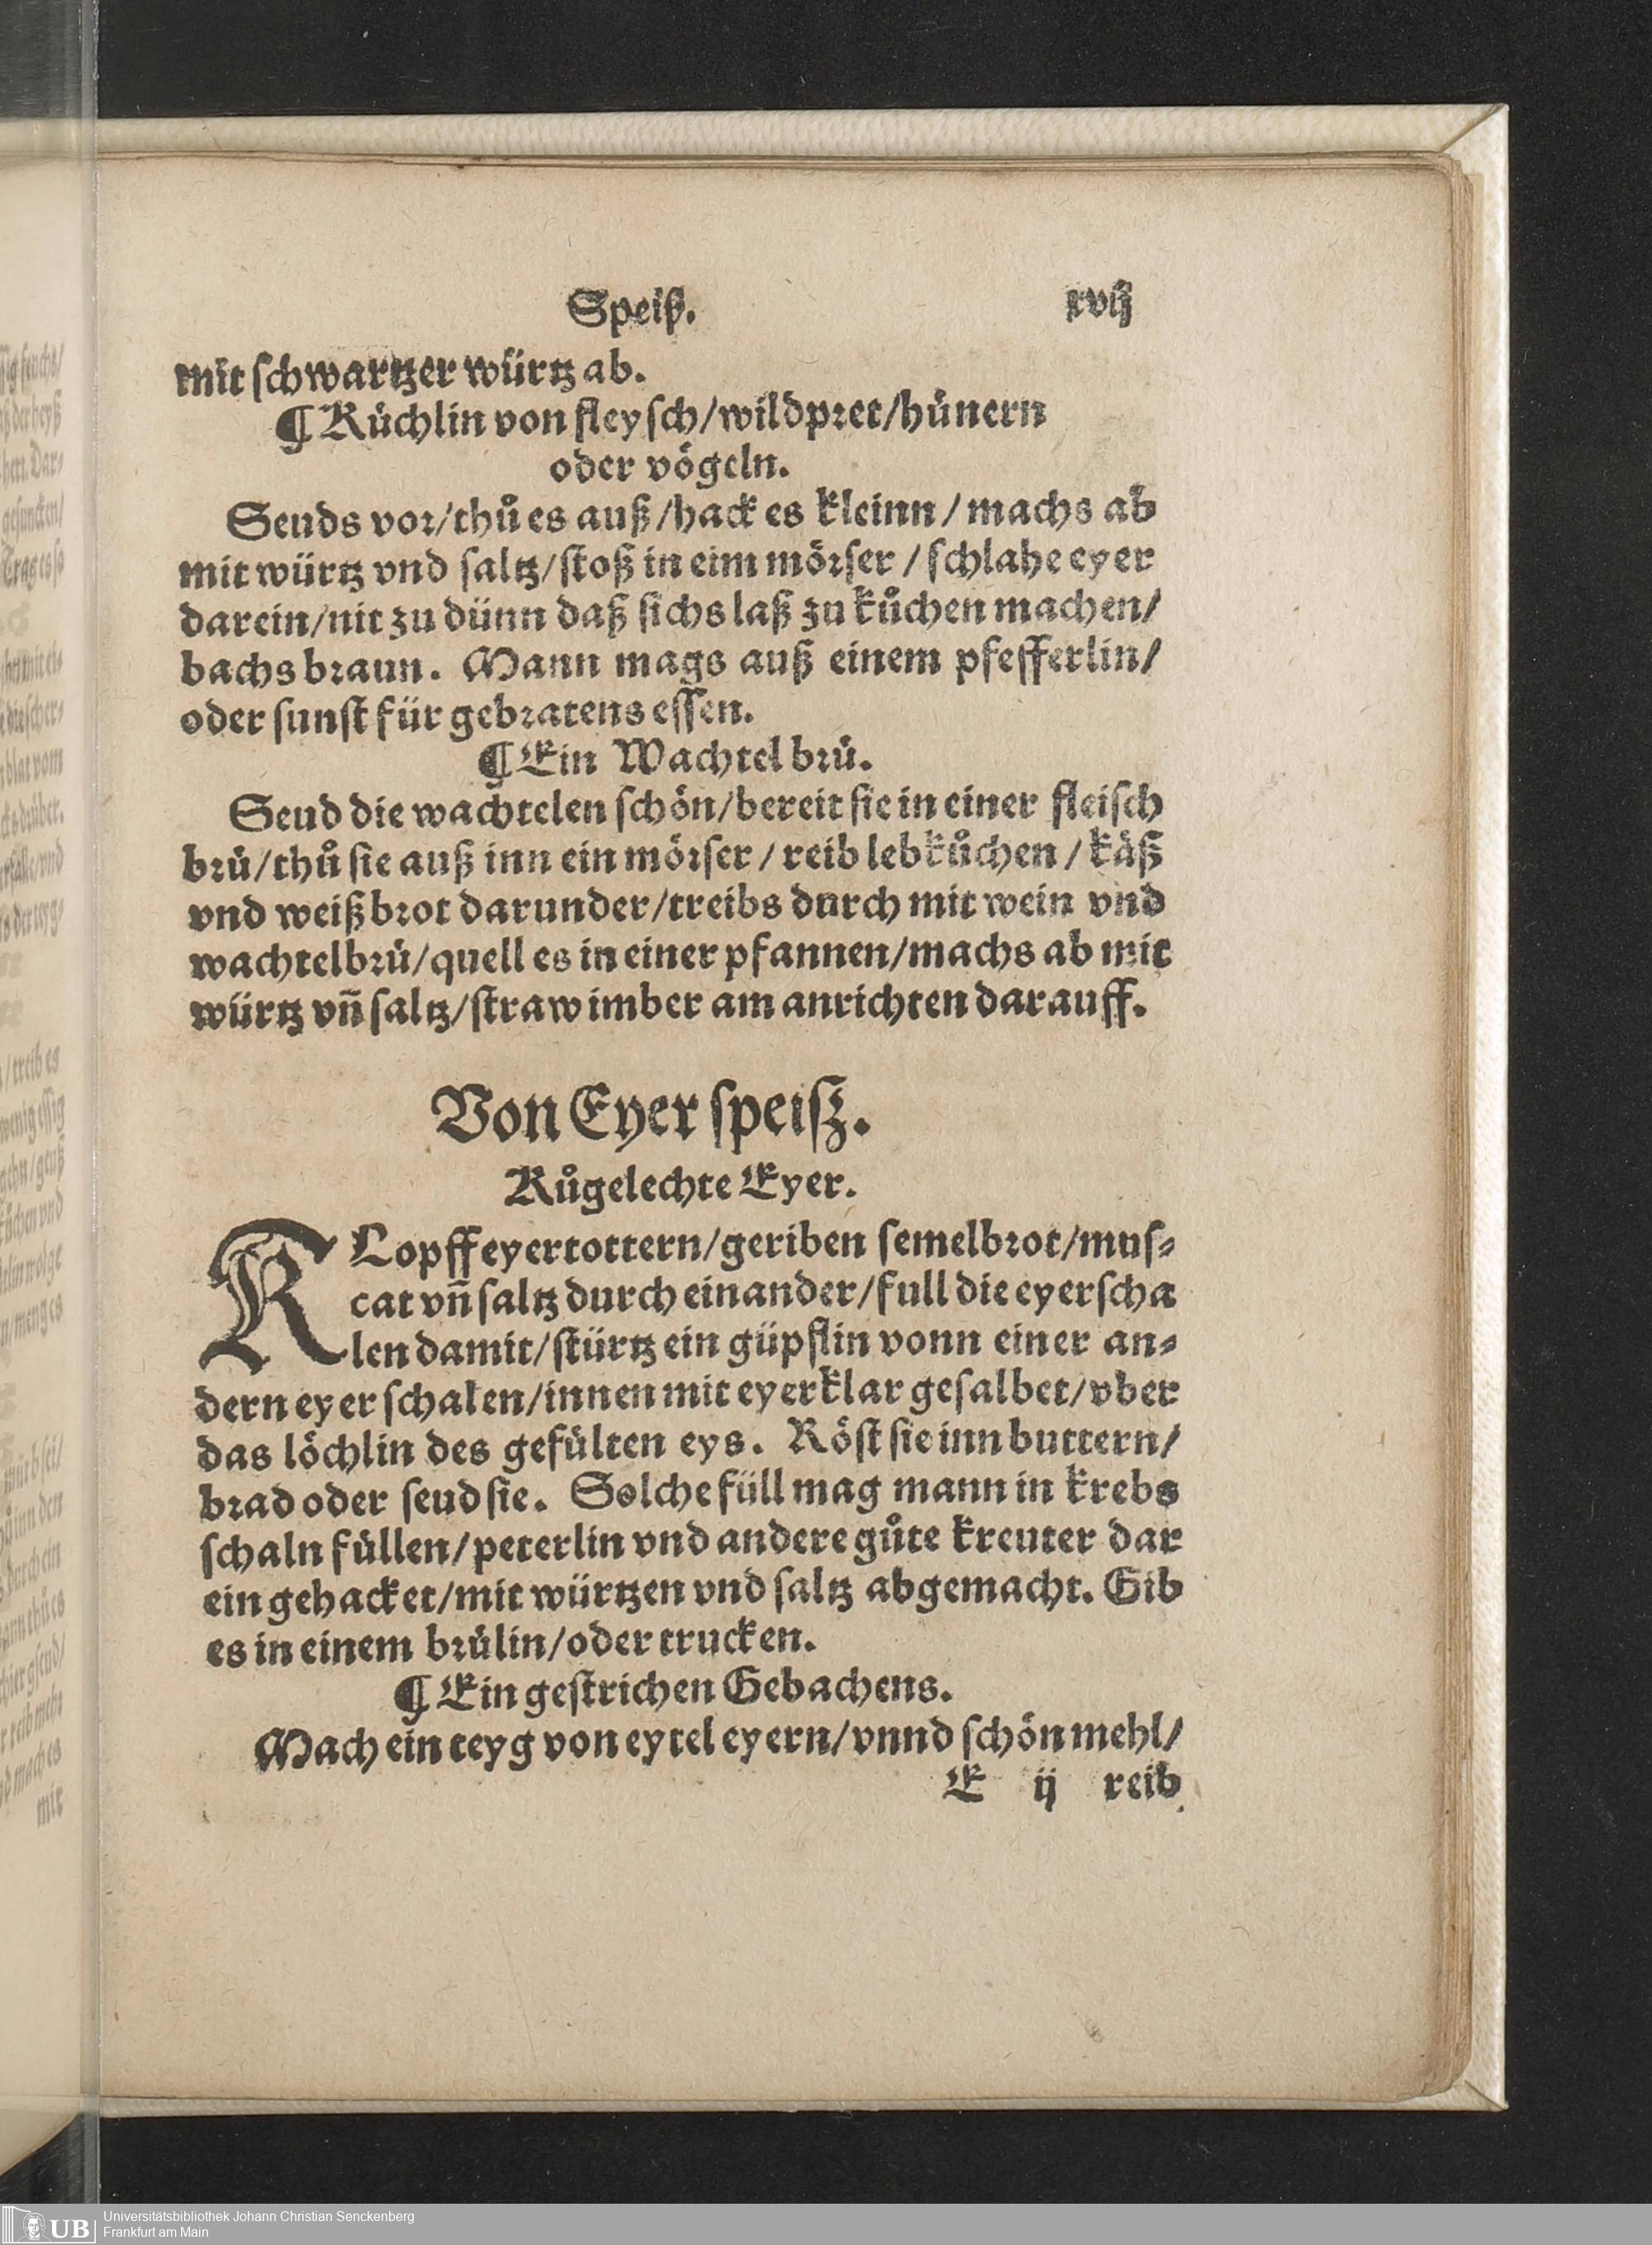 Speiß. xvij
mit ſchwartzer würtz ab.
¶ Kuͤchlin von fleyſch/wildpret/huͤnern
oder voͤgeln.
Seuds vor/thuͦ es auß/hack es kleinn/machs ab
mit würtz vnd ſaltz/ſtoß in eim moͤrſer/ſchlahe eyer
darein/nit zu dünn daß ſichs laß zu kuͦchen machen/
bachs braun. Mann mags auß einem pfefferlin/
oder ſunſt für gebratens eſſen.
¶ Ein Wachtel bruͤ.
Seud die wachtelen ſchoͤn/bereit ſie in einer fleiſch
bruͤ/thuͦ ſie auß inn ein moͤrſer/reib lebkuͦchen/kaͤß
vnd weißbrot darunder/treibs durch mit wein vnd
wachtelbruͤ/quell es in einer pfannen/machs ab mit
würtz vñ ſaltz/ſtraw imber am anrichten darauff.
Von Eyer ſpeiſz.
Kuͦgelechte Eyer.
KLopff eyertottern/geriben ſemelbrot/muſ⸗
cat vñ ſaltz durch einander/full die eyerſcha
len damit/ſtürtz ein güpflin vonn einer an⸗
dern eyer ſchalen/innen mit eyerklar geſalbet/vber
das loͤchlin des gefuͤlten eys. Roͤſt ſie inn buttern/
brad oder ſeud ſie. Solche füll mag mann in krebs
ſchaln fuͤllen/peterlin vnd andere guͦte kreuter dar
ein gehacket/mit würtzen vnd ſaltz abgemacht. Gib
es in einem bruͤlin/oder trucken.
¶ Ein geſtrichen Gebachens.
Mach ein teyg von eytel eyern/vnnd ſchoͤn mehl/
E ij reib
UB Universitätsbibliothek Johann Christian Senckenberg
Frankfurt am Main